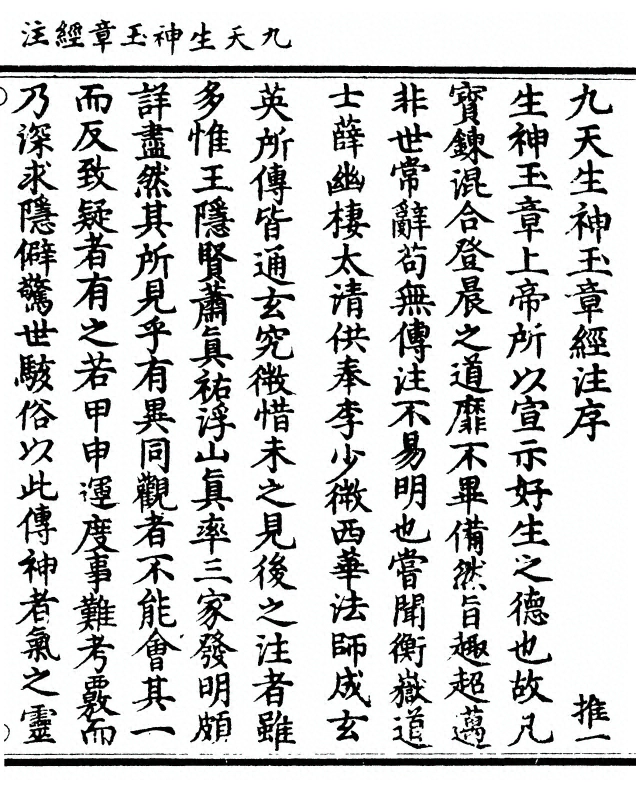 九天生神玉章經注
九天生神玉章經注序　推一
生神玉章上帝所以宣示好生之德也故凡
寶鍊混合登晨之道靡不畢備然旨趣超邁
非世常辭苟無傳注不易明也嘗聞衡嶽道
士薛幽棲太清供奉李少微西華法師成玄
英所傳皆通玄究微惜未之見後之注者雖
多惟王隱賢蕭眞祐浮山眞率三家發明頗
詳盡然其所見乎有異同觀者不能會其一
而反致疑者有之若甲申運度事難考覈而
乃深求隱僻驚世駭俗以此傳神者氣之靈